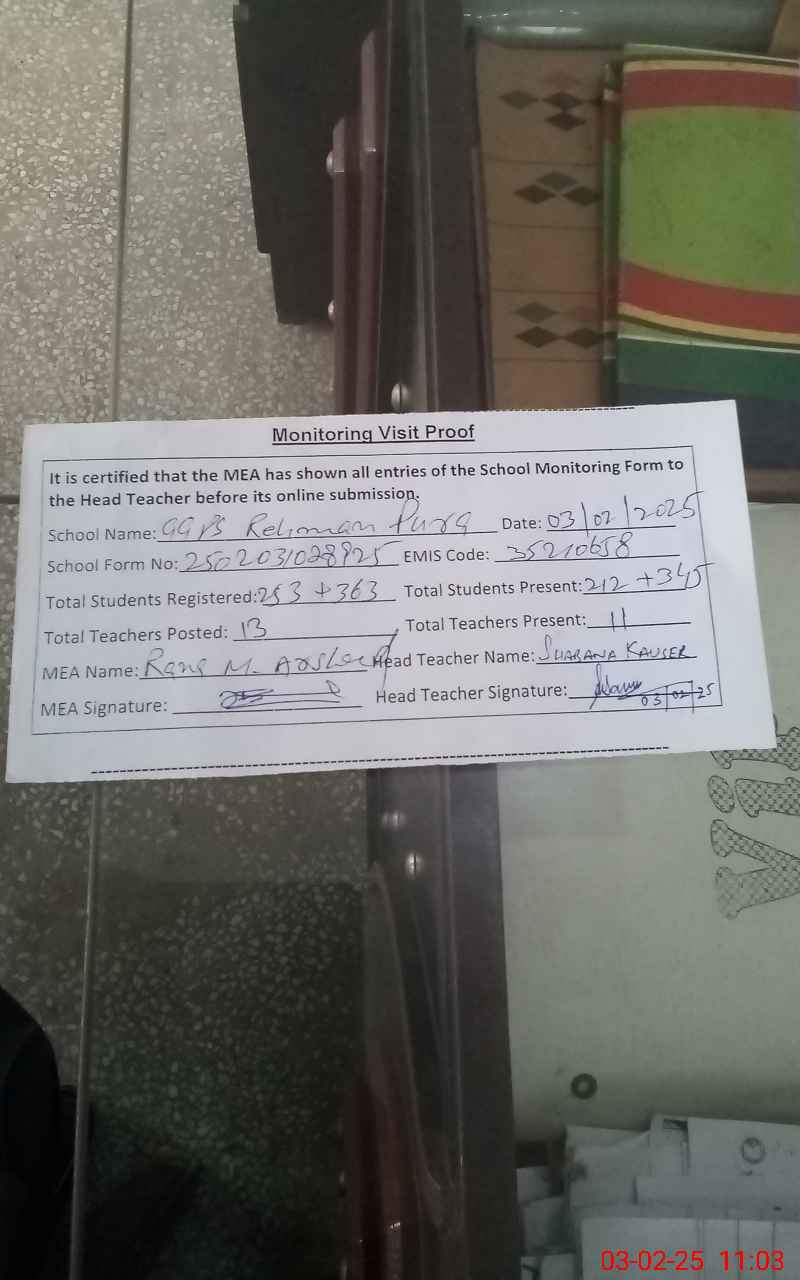 Monitoring Visit Proof
It is certified that the MEA has shown all entries of the School Monitoring Form to
the Head Teacher before its online submission.
School Name: GGPS Rehman Pura Date: 03/02/2025
School Form No: 250203/028925 EMIS Code: 35210658
Total Students Registered: 253 + 363 Total Students Present: 212 + 345
Total Teachers Posted: 13 Total Teachers Present: 11
MEA Name: Rana M. Head Teacher Name: SHABANA KAUSER
MEA Signature: Head Teacher Signature:
03/02/25
03-02-25 11:03